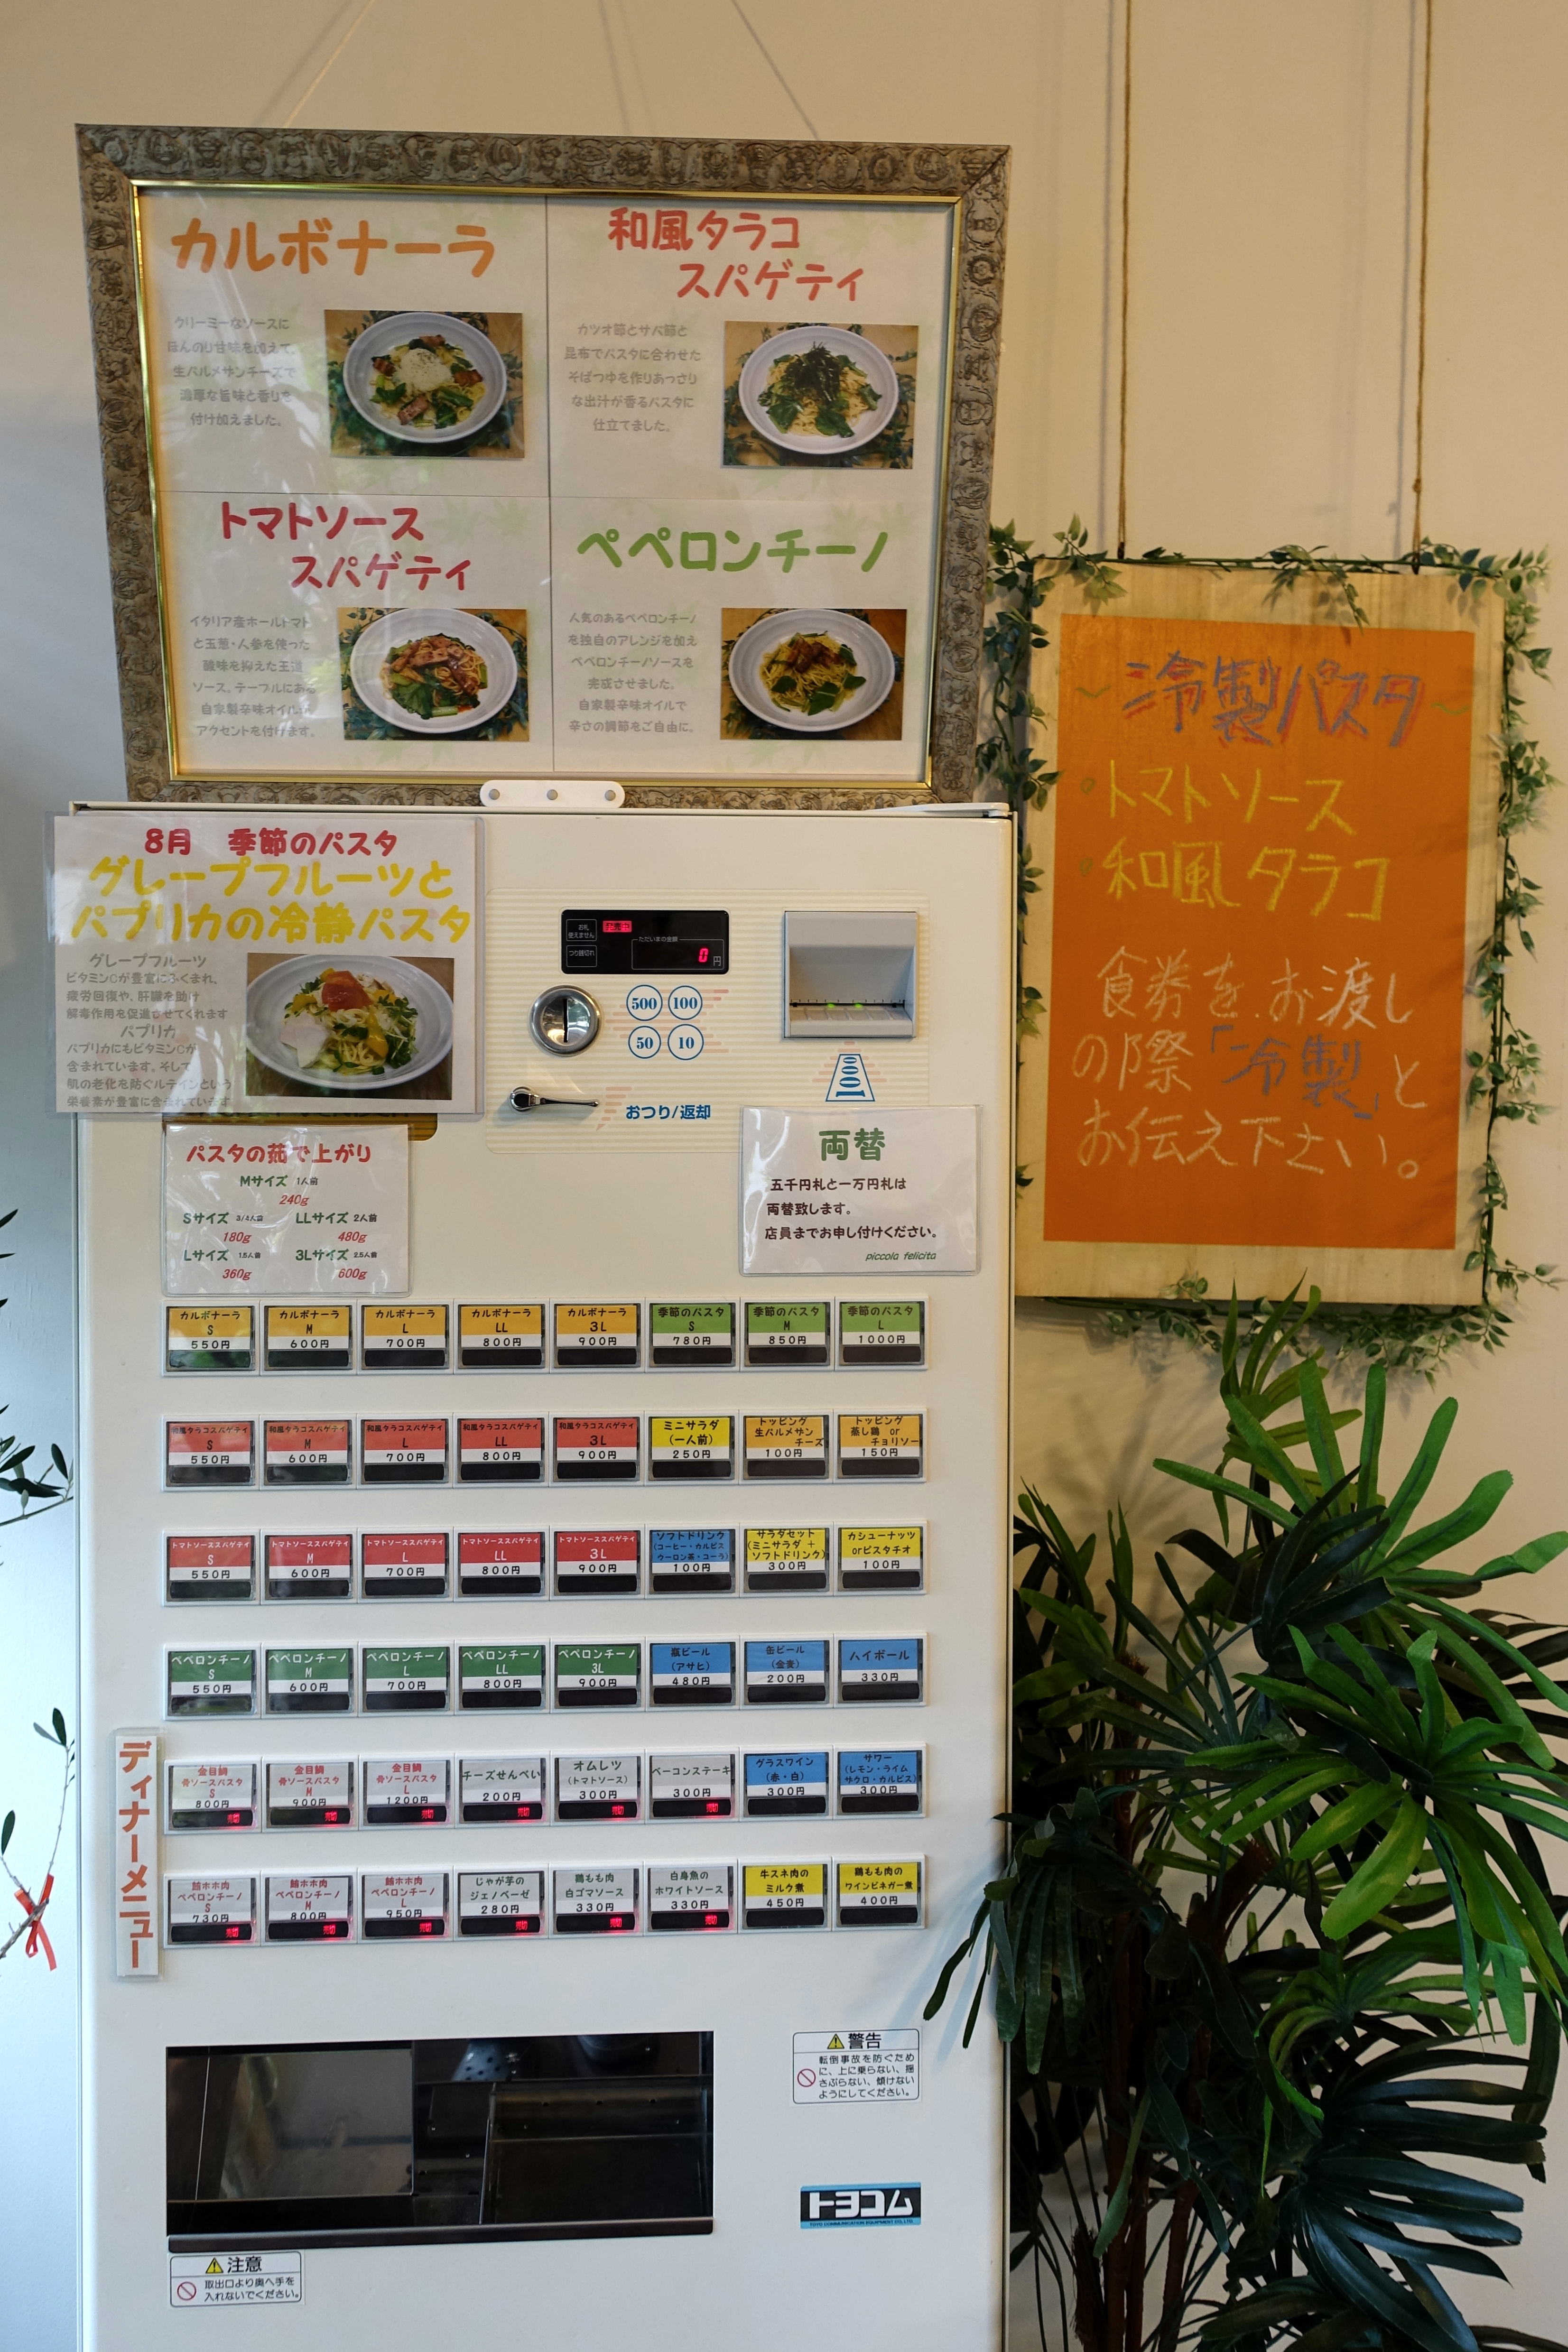 カルボナーラ
クリーミーなソースに
ほんのり甘味を加えて、
生パルメサンチーズで
濃厚な旨味と香りを
付け加えました。
和風タラコ
スパゲティ
カツオ節とサバ節と
昆布でパスタに合わせた
そばつゆを作りあっさり
な出汁が香るパスタに
仕立てました。
トマトソース
スパゲティ
イタリア産ホールトマト
と玉葱・人参を使った
酸味を抑えた王道
ソース。テーブルにある
自家製辛味オイルが
アクセントを付けます。
ペペロンチーノ
人気のあるペペロンチーノ
を独自のアレンジを加え
ペペロンチーノソースを
完成させました。
自家製辛味オイルで
辛さの調節をご自由に。
冷製パスタ
・トマトソース
・和風タラコ
食券をお渡し
の際「冷製」と
お伝え下さい。
8月 季節のパスタ
グレープフルーツと
パプリカの冷静パスタ
グレープフルーツ
ビタミンCが豊富にふくまれ、
疲労回復や、肝臓を助け
解毒作用を促進させてくれます
パプリカ
パプリカにもビタミンCが
含まれています。そして
肌の老化を防ぐルテインという
栄養素が豊富に含まれています
お札
使えません
つり銭切れ
ただいまの金額
0円
500 100
50 10
1000
おつり/返却
パスタの茹で上がり
Mサイズ 1人前
240g
Sサイズ 3/4人前 LLサイズ 2人前
180g 480g
Lサイズ 1.5人前 3Lサイズ 2.5人前
360g 600g
両替
五千円札と一万円札は
両替致します。
店員までお申し付けください。
piccola felicita
カルボナーラ S 550円
カルボナーラ M 600円
カルボナーラ L 700円
カルボナーラ LL 800円
カルボナーラ 3L 900円
季節のパスタ S 780円
季節のパスタ M 850円
季節のパスタ L 1000円
和風タラコスパゲティ S 550円
和風タラコスパゲティ M 600円
和風タラコスパゲティ L 700円
和風タラコスパゲティ LL 800円
和風タラコスパゲティ 3L 900円
ミニサラダ (一人前) 250円
トッピング 生パルメサンチーズ 100円
トッピング 蒸し鶏 or チョリソー 150円
トマトソーススパゲティ S 550円
トマトソーススパゲティ M 600円
トマトソーススパゲティ L 700円
トマトソーススパゲティ LL 800円
トマトソーススパゲティ 3L 900円
ソフトドリンク (コーヒー・カルピス ウーロン茶・コーラ) 100円
サラダセット (ミニサラダ + ソフトドリンク) 300円
カシューナッツ orピスタチオ 100円
ペペロンチーノ S 550円
ペペロンチーノ M 600円
ペペロンチーノ L 700円
ペペロンチーノ LL 800円
ペペロンチーノ 3L 900円
瓶ビール (アサヒ) 480円
缶ビール (金麦) 200円
ハイボール 330円
ディナーメニュー
金目鯛 骨ソースパスタ S 800円 売切
金目鯛 骨ソースパスタ M 900円 売切
金目鯛 骨ソースパスタ L 1200円 売切
チーズせんべい 200円 売切
オムレツ (トマトソース) 300円 売切
ベーコンステーキ 300円 売切
グラスワイン (赤・白) 300円
サワー (レモン・ライム ザクロ・カルピス) 300円
鮪ホホ肉 ペペロンチーノ S 730円 売切
鮪ホホ肉 ペペロンチーノ M 800円 売切
鮪ホホ肉 ペペロンチーノ L 950円 売切
じゃが芋の ジェノベーゼ 280円 売切
鶏もも肉 白ゴマソース 330円 売切
白身魚の ホワイトソース 330円 売切
牛スネ肉の ミルク煮 450円
鶏もも肉の ワインビネガー煮 400円
警告
転倒事故を防ぐため
に、上に乗らない、揺
さぶらない、傾けない
ようにしてください。
トヨコム
TOYO COMMUNICATION EQUIPMENT CO.,LTD.
注意
取出口より奥へ手を
入れないでください。